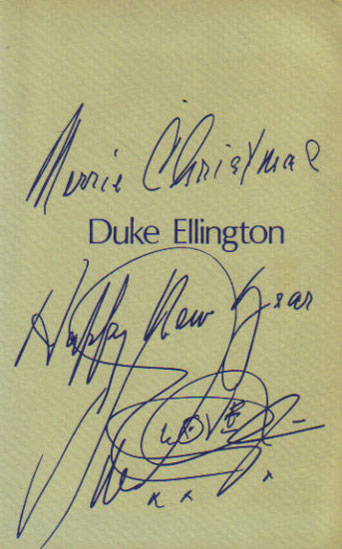 Merrie Christmas
Duke Ellington
Happy New Year
LOVE